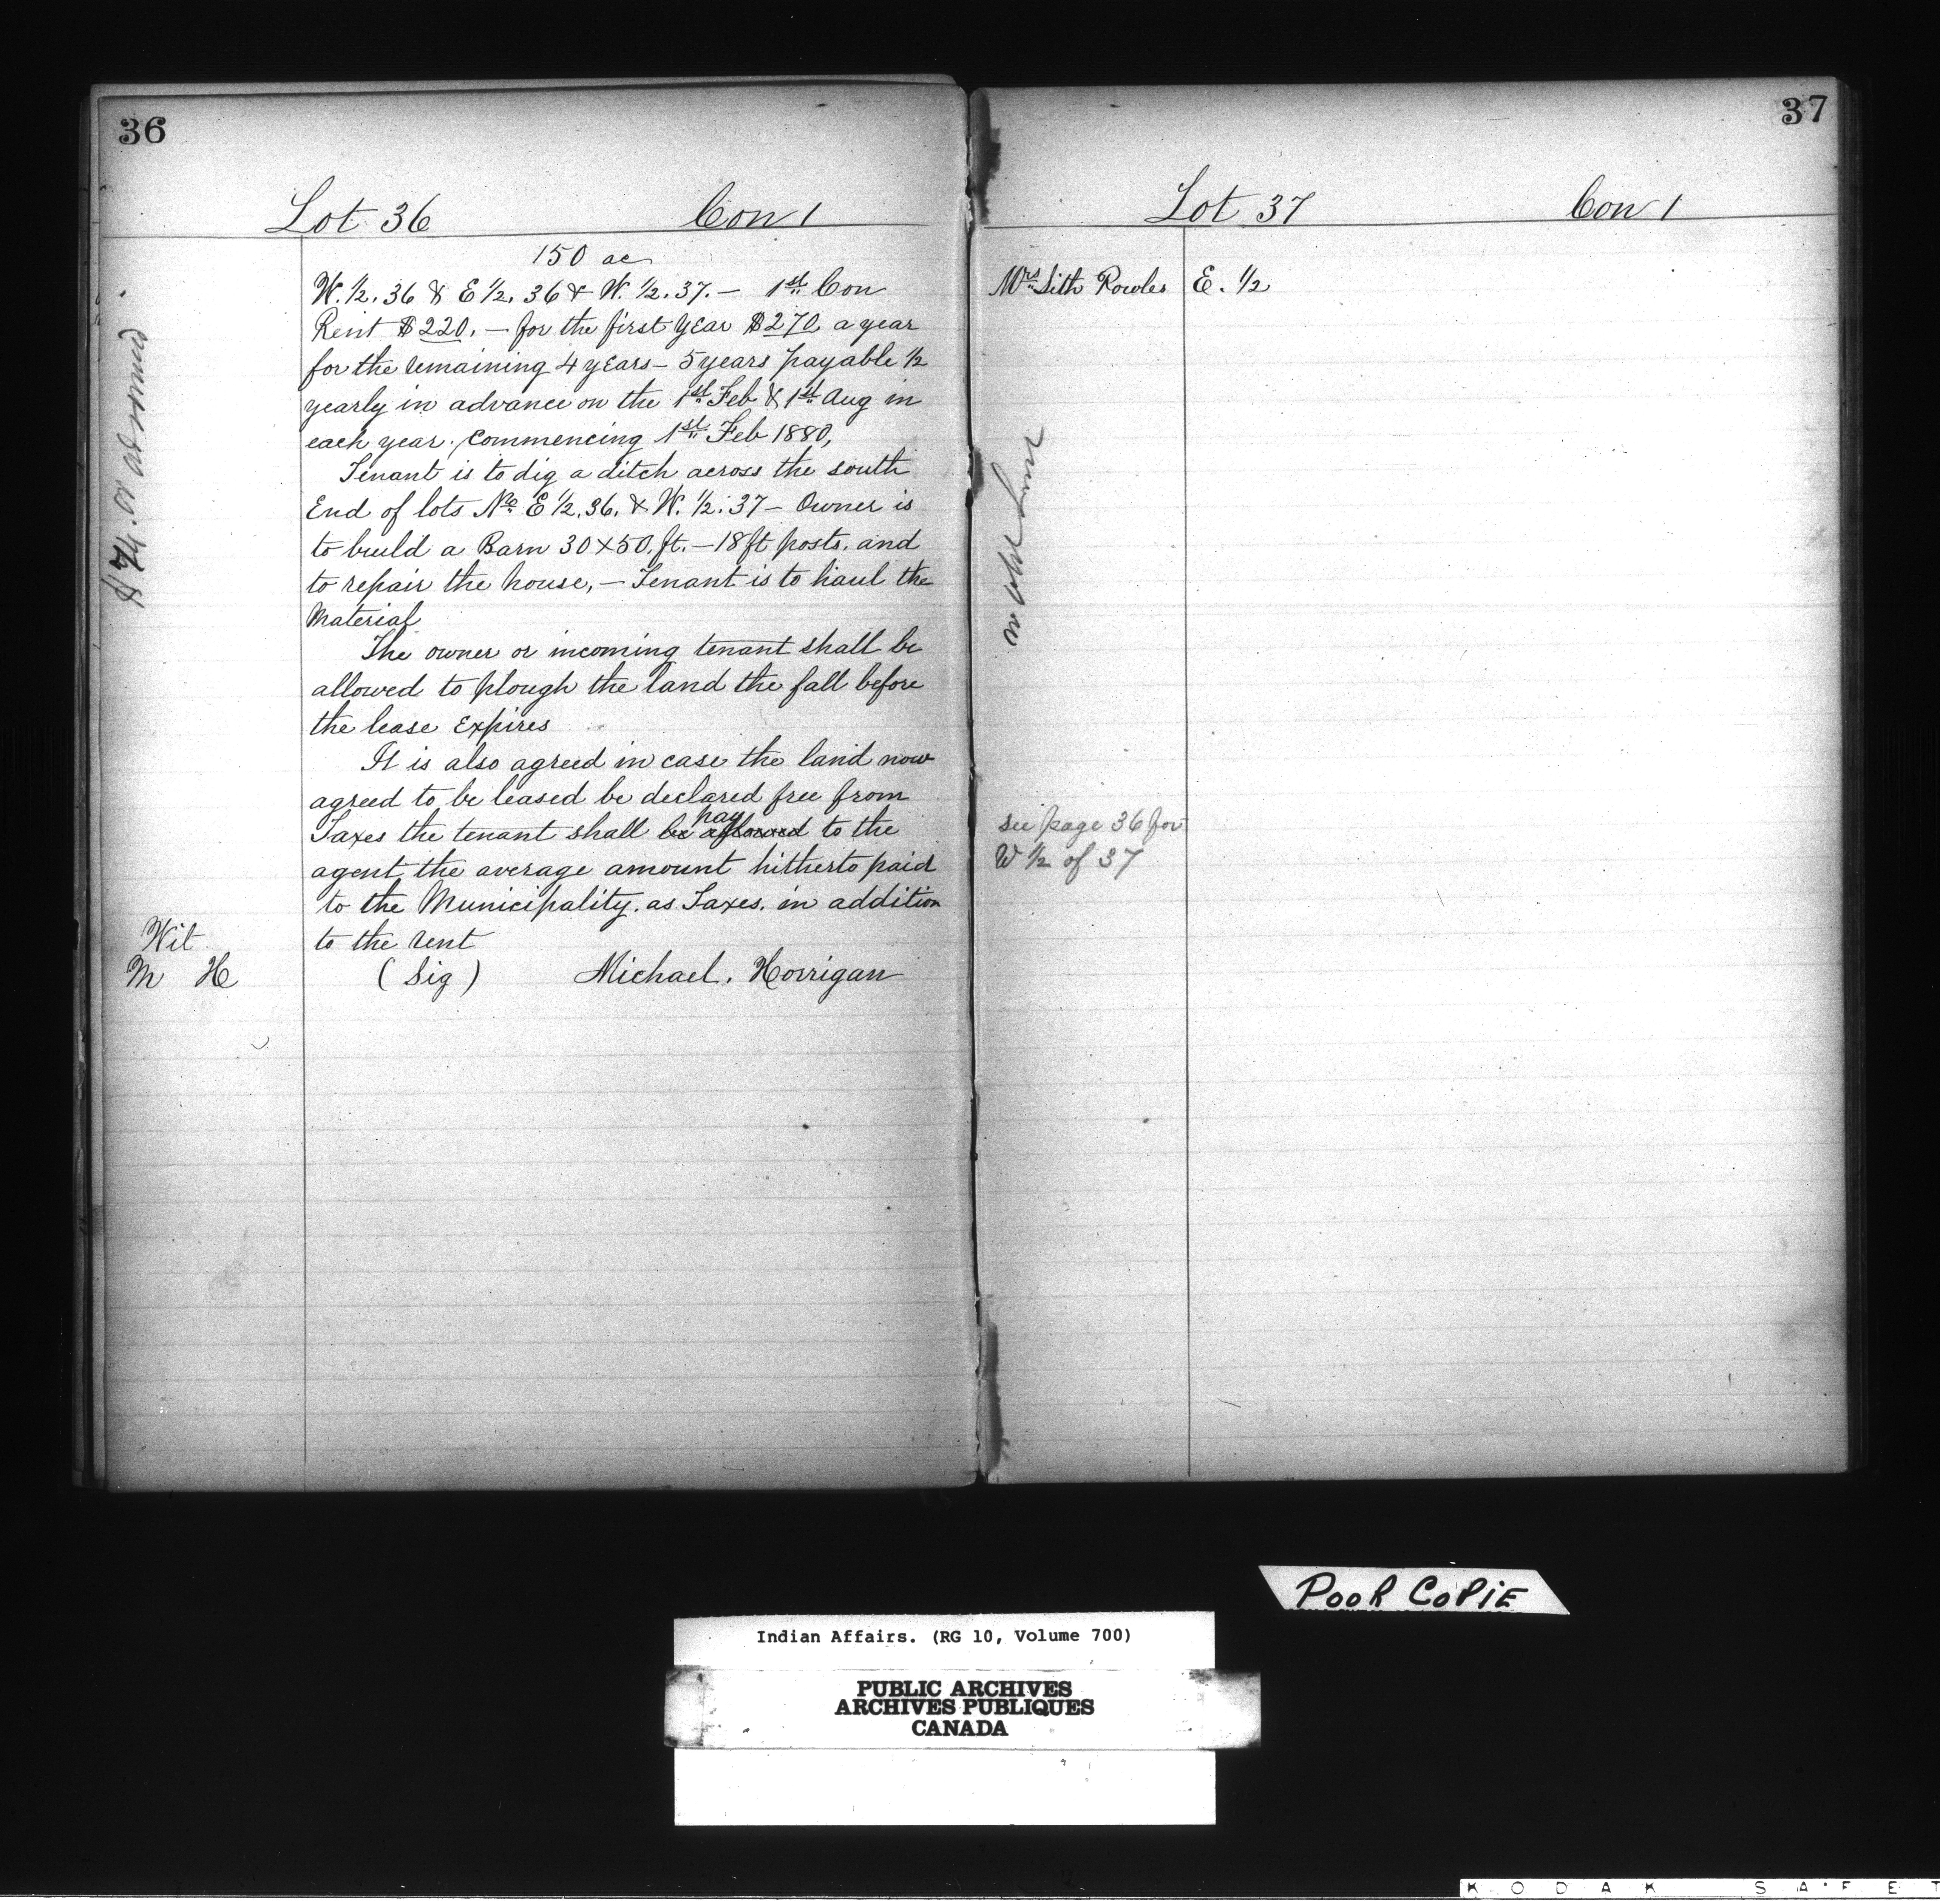 36
Lot 36 Con 1
150 ac
W. ½. 36 & E ½. 36 & W. ½. 37. — 1st Con
Rent $220. — for the first year $270 a year
for the remaining 4 years — 5 years payable ½
yearly in advance on the 1st Feb & 1st Aug in
each year. Commencing 1st Feb 1880,
Tenant is to dig a ditch across the south
End of lots No E ½. 36. & W. ½. 37 — Owner is
to build a Barn 30 x 50. ft. — 18 ft posts. and
to repair the house, — Tenant is to haul the
Material
The owner or incoming tenant shall be
allowed to plough the land the fall before
the lease Expires
It is also agreed in case the land now
agreed to be leased be declared free from
pay
Taxes the tenant shall be allowed to the
agent the average amount hitherto paid
to the Municipality. as Taxes. in addition
to the rent
Wit
M H (Sig) Michael. Horrigan
$74. or
37
Lot 37 Con 1
Mrs Sith Rowles E. ½
see page 36 for
W ½ of 37
POOR COPIE
Indian Affairs. (RG 10, Volume 700)
PUBLIC ARCHIVES
ARCHIVES PUBLIQUES
CANADA
KODAK SAFET